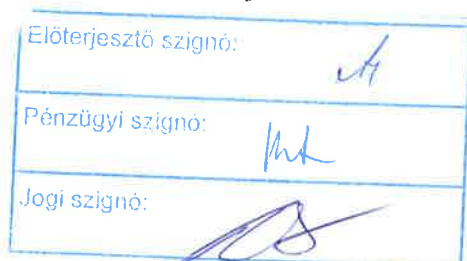 Előterjesztő szignó:
Pénzügyi szignó:
Jogi szignó: